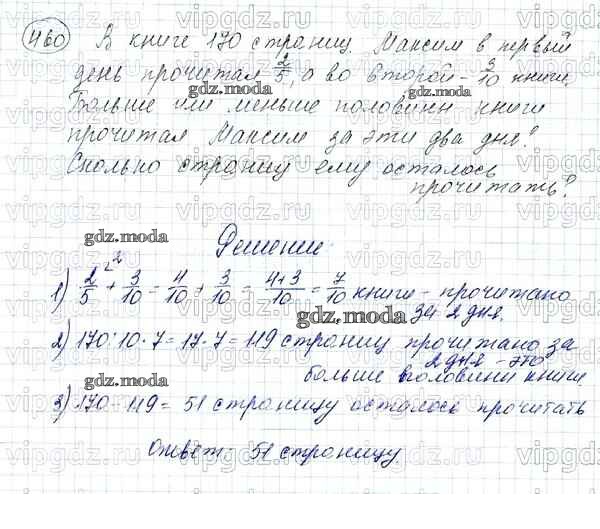 460 В книге 170 страниц. Максим в первый
день прочитал 2/5, а во второй - 3/10 книги.
Больше или меньше половины книги
прочитал Максим за эти два дня?
Сколько страниц ему осталось
прочитать?
Решение:
1) 2/5 + 3/10 = 4/10 + 3/10 = 4+3/10 = 7/10 книги - прочитано
за 2 дня.
2) 170:10·7=17·7=119 страниц прочитано за
2 дня - это
больше половины книги
3) 170-119= 51 страницу осталось прочитать
Ответ: 51 страницу.
gdz.moda
vipgdz.ru